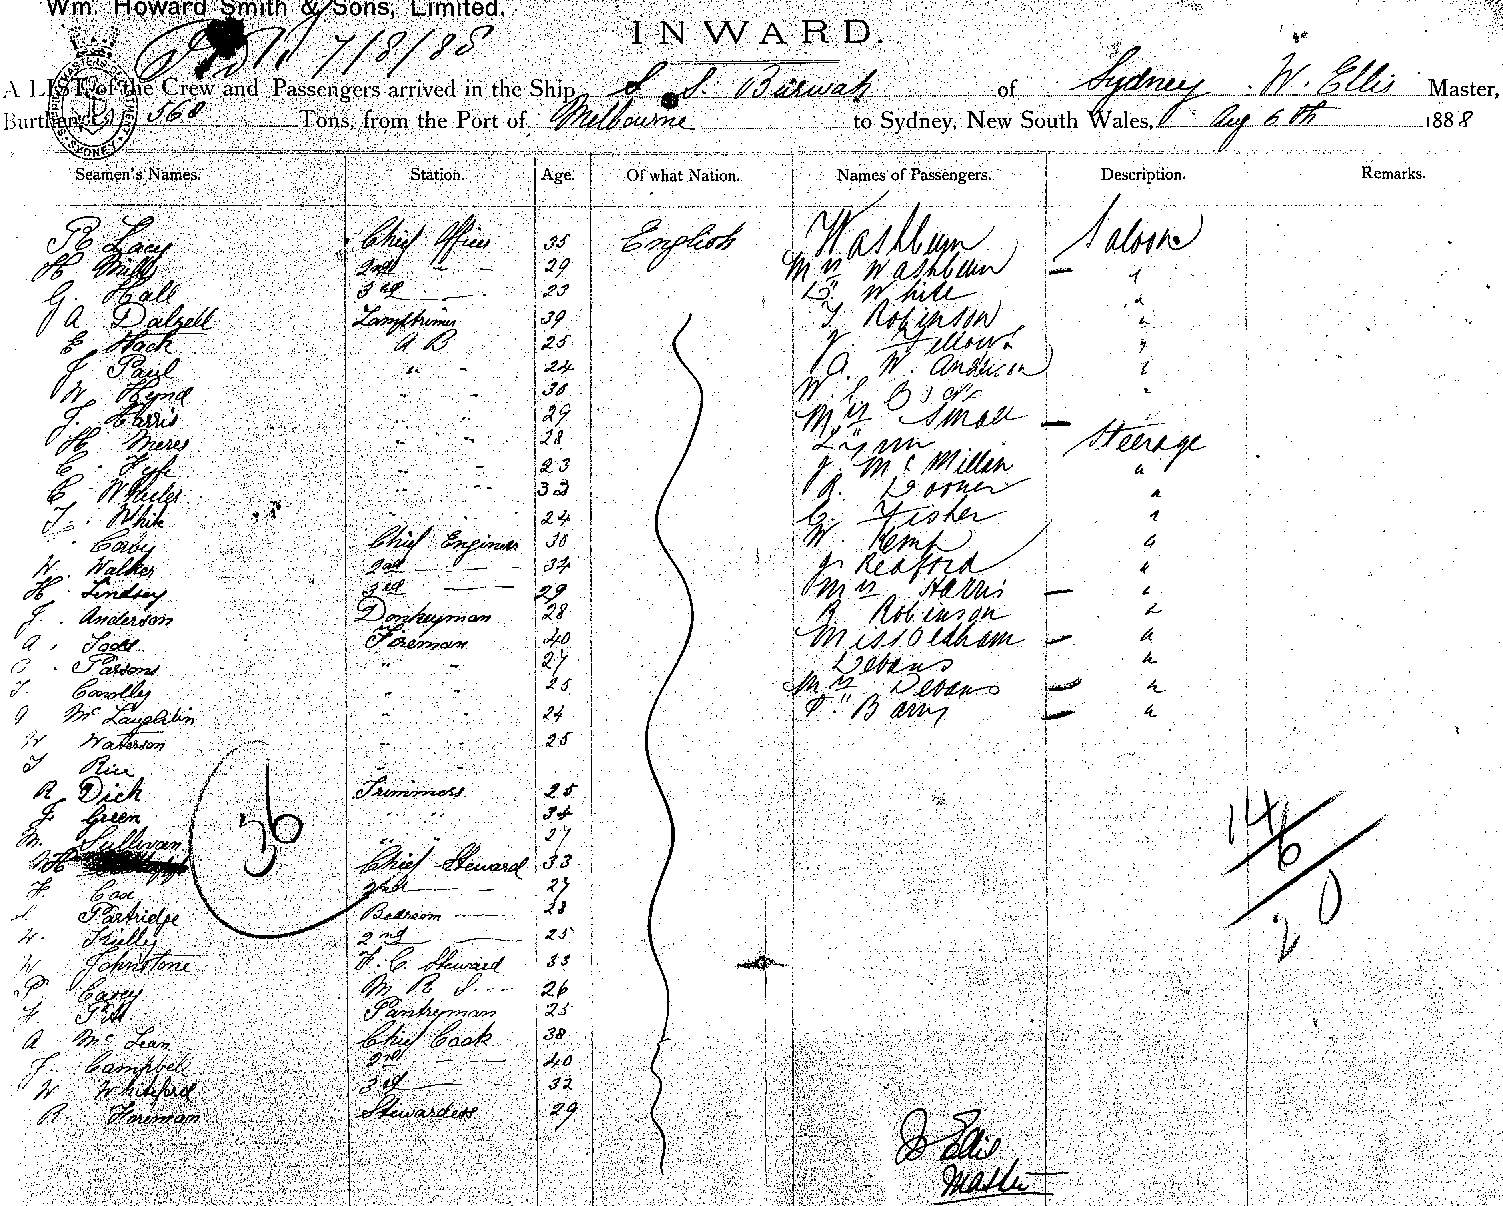 Wm. Howard Smith & Sons, Limited.
7/8/88
INWARD.
A LIST of the Crew and Passengers arrived in the Ship S. S. Burwah of Sydney W. Ellis Master,
Burthen 568 Tons, from the Port of Melbourne to Sydney, New South Wales, Aug 6th 1888
Seamen's Names. Station. Age. Of what Nation. Names of Passengers. Description. Remarks.
R Lacy Chief Officer 35 English Washburn Saloon
H Mills 2nd " 29 Mrs Washburn "
G Hall 3rd 23 White "
A Dalzell Lamptrimmer 39 T Robinson "
E Hack A B 25 J. Fellows "
J Paul " " 24 A. W. Anderson "
W Hynd " " 30 W. "
J. Harris " " 29 Mrs Small "
H Meres " " 28 Steerage
C. Fyfe " " 23 J McMillan "
C. Wheeler " " 33 R. "
T. White " " 24 C Fisher "
Coby Chief Engineer 30 W. Kemp "
W. Walker 2nd 34 J Redford "
H. Lindsey 3rd 29 Mrs Harris "
J. Anderson Donkeyman 28 R Robinson "
A. Todd Fireman 40 Miss Oldham "
Parsons " " 27 Debans "
T. Conolly " " 25 Mrs Debans "
J McLaughlin " " 24 Barry "
W Waterson " " 25
T Rice " "
R Dick Trimmers 25
J. Green " " 34
M. Sullivan " " 27
36
14
6
20
Chief Steward 33
F. Cox 2nd 27
Partridge Bedroom 28
Kielly 2nd 25
W Johnstone F. C. Steward 33
P Carey M R S 26
F Pitt Pantryman 25
A McLean Chief Cook 38
J. Campbell 2nd 40
W Whiteford 3rd 32
R. Foreman Stewardess 29
Ellis
Master